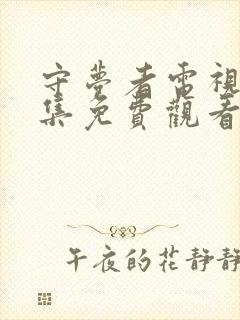 守夢者電視
集免費觀看
午夜的花靜靜